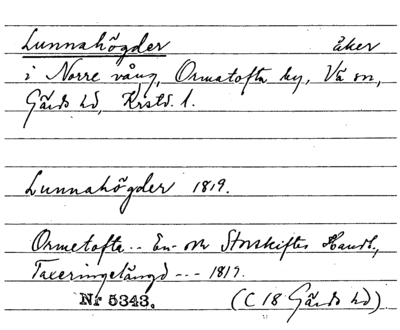 Lunnahögder åker
i Norre vång, Ormatofta by, Vä sn,
Gärds hd, Krstd. l.
Lunnahögder 1819.
Ormetofte -- En- och Storskiftes Handl.,
Taxeringslängd --- 1819.
Nr 5343. (C 18 Gärds hd)